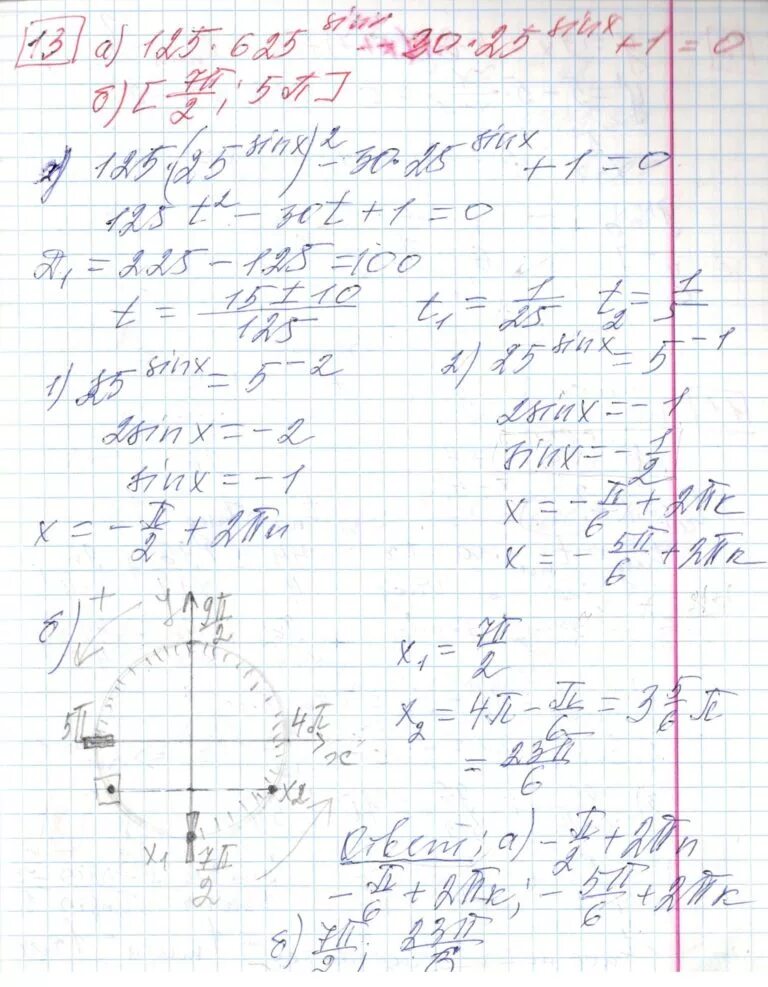 13 а) 125·625^sinx − 30·25^sinx + 1 = 0
б) [7π/2; 5π]
а) 125·(25^sinx)² − 30·25^sinx + 1 = 0
125t² − 30t + 1 = 0
Д₁ = 225 − 125 = 100
t = (15 ± 10)/125 t₁ = 1/25 t₂ = 1/5
1) 25^sinx = 5^−2
2sinx = −2
sinx = −1
x = −π/2 + 2πn
2) 25^sinx = 5^−1
2sinx = −1
sinx = −1/2
x = −π/6 + 2πk
x = −5π/6 + 2πk
б) + y 9π/2
5π 4π x
x₂
x₁ 7π/2
x₁ = 7π/2
x₂ = 4π − π/6 = 3 5/6 π
= 23π/6
Ответ: а) −π/2 + 2πn
−π/6 + 2πk; −5π/6 + 2πk
б) 7π/2; 23π/6